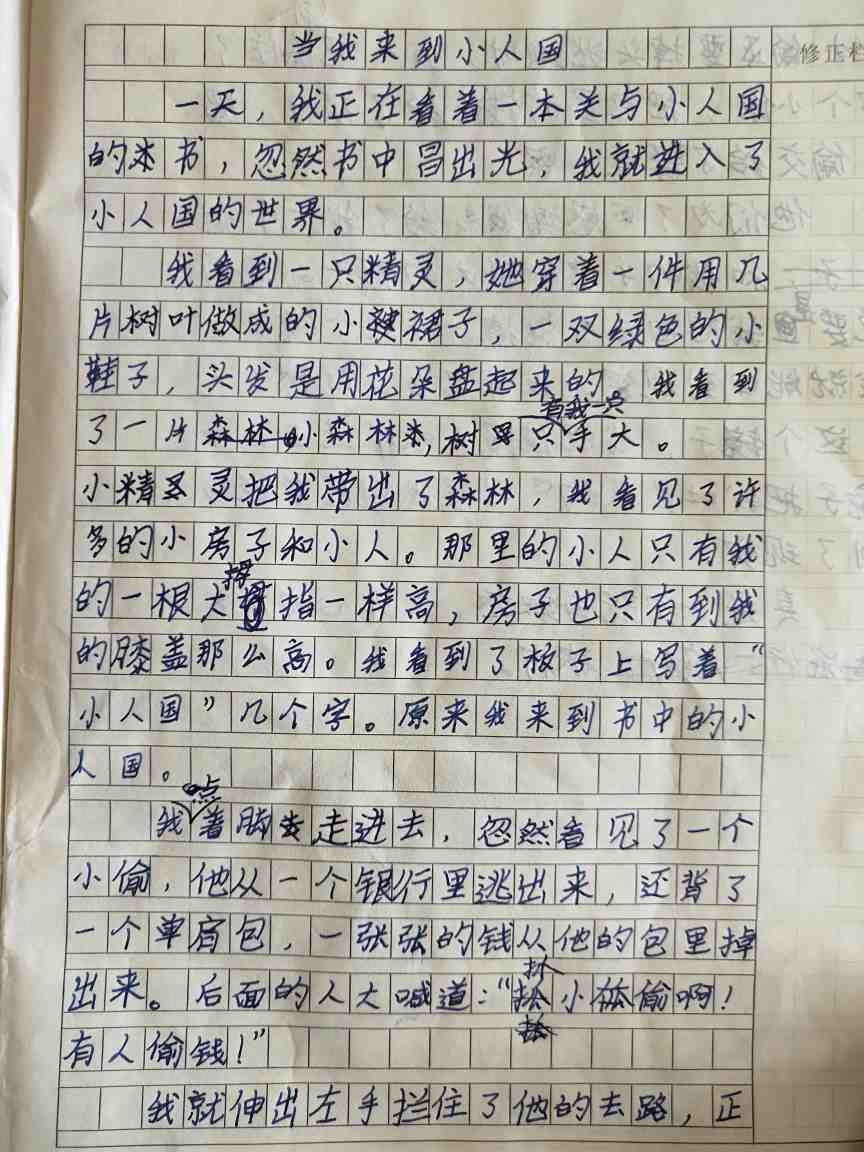 当我来到小人国
修正栏
一天，我正在看着一本关与小人国
的本书，忽然书中冒出光，我就进入了
小人国的世界。
我看到一只精灵，她穿着一件用几
片树叶做成的小裙子，一双绿色的小
鞋子，头发是用花朵盘起来的 我看到
有我一只
了一片小森林，树只手大。
小精灵把我带出了森林，我看见了许
多的小房子和小人。那里的小人只有我
的一根大拇指一样高，房子也只有到我
的膝盖那么高。我看到了板子上写着“
小人国”几个字。原来我来到书中的小
人国。
点
我着脚走进去，忽然看见了一个
小偷，他从一个银行里逃出来，还背了
一个单肩包，一张张的钱从他的包里掉
出来。后面的人大喊道：“小偷啊！
有人偷钱！”
我就伸出左手拦住了他的去路，正